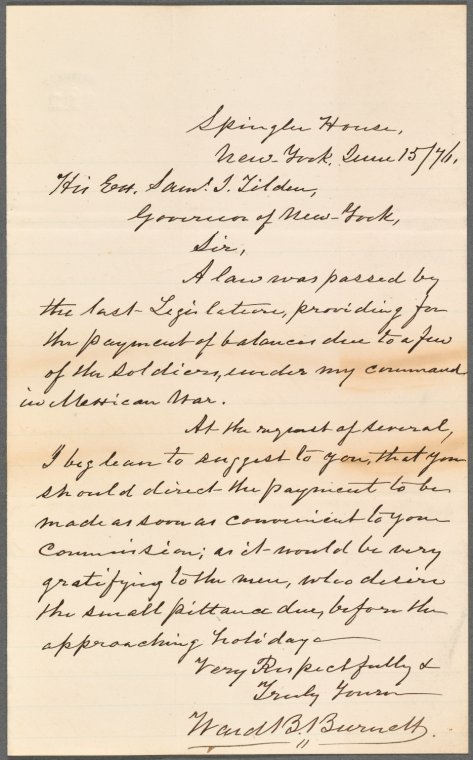 Spingler House,
New-York, June 15/76.
His Ex. Saml. J. Tilden,
Governor of New-York,
Sir,
A law was passed by
the last Legislature, providing for
the payment of balances due to a few
of the soldiers, under my command
in Mexican War.
At the request of several,
I beg leave to suggest to you, that you
should direct the payment to be
made as soon as convenient to your
Commission; as it would be very
gratifying to the men, who desire
the small pittance due, before the
approaching holidays
Very Respectfully &
Truly Yours
Ward B. Burnett.